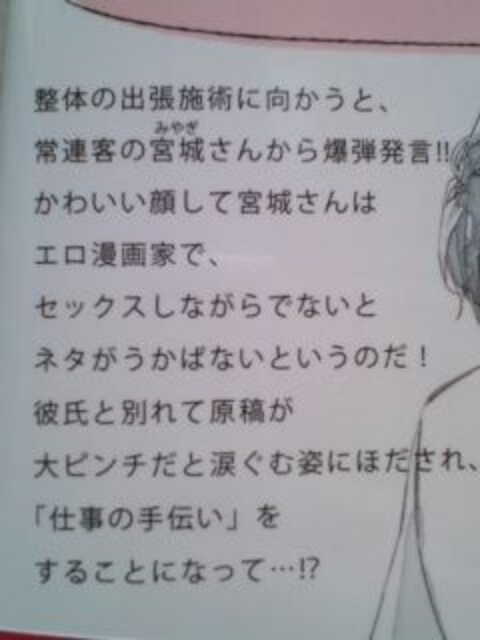 整体の出張施術に向かうと、
みやぎ
常連客の宮城さんから爆弾発言!!
かわいい顔して宮城さんは
エロ漫画家で、
セックスしながらでないと
ネタがうかばないというのだ！
彼氏と別れて原稿が
大ピンチだと涙ぐむ姿にほだされ、
「仕事の手伝い」を
することになって…!?